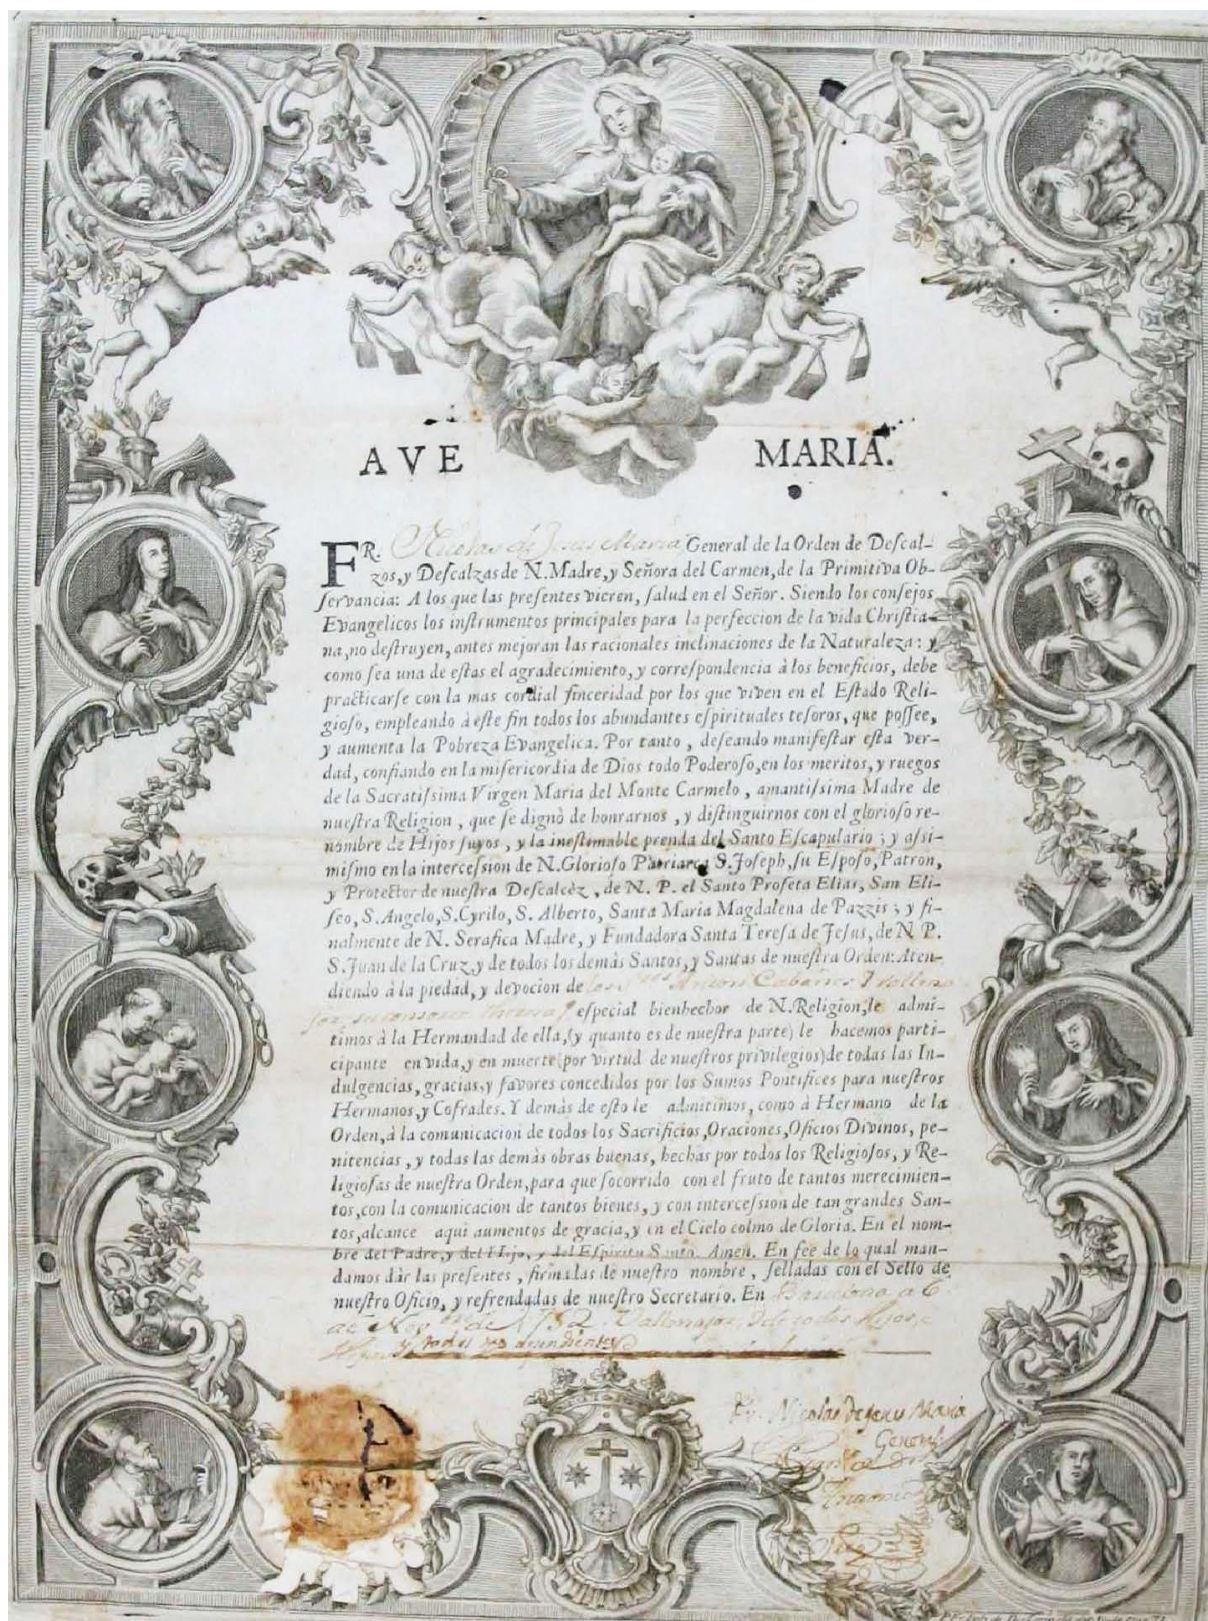 AVE MARIA.
FR. Nicolas de Jesus Maria General de la Orden de Descal-
zos, y Descalzas de N. Madre, y Señora del Carmen, de la Primitiva Ob-
servancia: A los que las presentes vieren, salud en el Señor. Siendo los consejos
Evangelicos los instrumentos principales para la perfeccion de la vida Christia-
na, no destruyen, antes mejoran las racionales inclinaciones de la Naturaleza: y
como sea una de estas el agradecimiento, y correspondencia à los beneficios, debe
practicarse con la mas cordial sinceridad por los que viven en el Estado Reli-
gioso, empleando à este fin todos los abundantes espirituales tesoros, que possee,
y aumenta la Pobreza Evangelica. Por tanto, deseando manifestar esta ver-
dad, confiando en la misericordia de Dios todo Poderoso, en los meritos, y ruegos
de la Sacratissima Virgen Maria del Monte Carmelo, amantissima Madre de
nuestra Religion, que se dignò de honrarnos, y distinguirnos con el glorioso re-
nombre de Hijos suyos, y la inestimable prenda del Santo Escapulario; y assi-
mismo en la intercession de N. Glorioso Patriarca S. Joseph, su Esposo, Patron,
y Protector de nuestra Descalcèz, de N. P. el Santo Profeta Elias, San Eli-
seo, S. Angelo, S. Cyrilo, S. Alberto, Santa Maria Magdalena de Pazzis; y fi-
nalmente de N. Serafica Madre, y Fundadora Santa Teresa de Jesus, de N. P.
S. Juan de la Cruz, y de todos los demás Santos, y Santas de nuestra Orden: Aten-
diendo à la piedad, y devocion de los Anton Cabañes
especial bienhechor de N. Religion, le admi-
timos à la Hermandad de ella, (y quanto es de nuestra parte) le hacemos parti-
cipante en vida, y en muerte (por virtud de nuestros privilegios) de todas las In-
dulgencias, gracias, y favores concedidos por los Sumos Pontifices para nuestros
Hermanos, y Cofrades. Y demás de esto le admitimos, como à Hermano de la
Orden, à la comunicacion de todos los Sacrificios, Oraciones, Oficios Divinos, pe-
nitencias, y todas las demás obras buenas, hechas por todos los Religiosos, y Re-
ligiosas de nuestra Orden, para que socorrido con el fruto de tantos merecimien-
tos, con la comunicacion de tantos bienes, y con intercession de tan grandes San-
tos, alcance aqui aumentos de gracia, y en el Cielo colmo de Gloria. En el nom-
bre del Padre, y del Hijo, y del Espiritu Santo. Amen. En fee de lo qual man-
damos dàr las presentes, firmadas de nuestro nombre, selladas con el Sello de
nuestro Oficio, y refrendadas de nuestro Secretario. En Barcelona a 6
de de 1752. de todos Hijos,
y todos
Fr. Nicolas de Jesus Maria
General